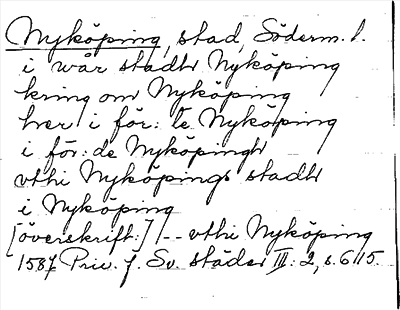 Nyköping, stad, Söderm. l.
i wår stadh Nyköping
kring om Nyköping
her i för: te Nyköping
i för: de Nyköpingh
vthi Nyköpings stadh
i Nyköping
[överskrift:] -- vthi Nyköping
1587 Priv. f. Sv. städer III: 2, s. 615.